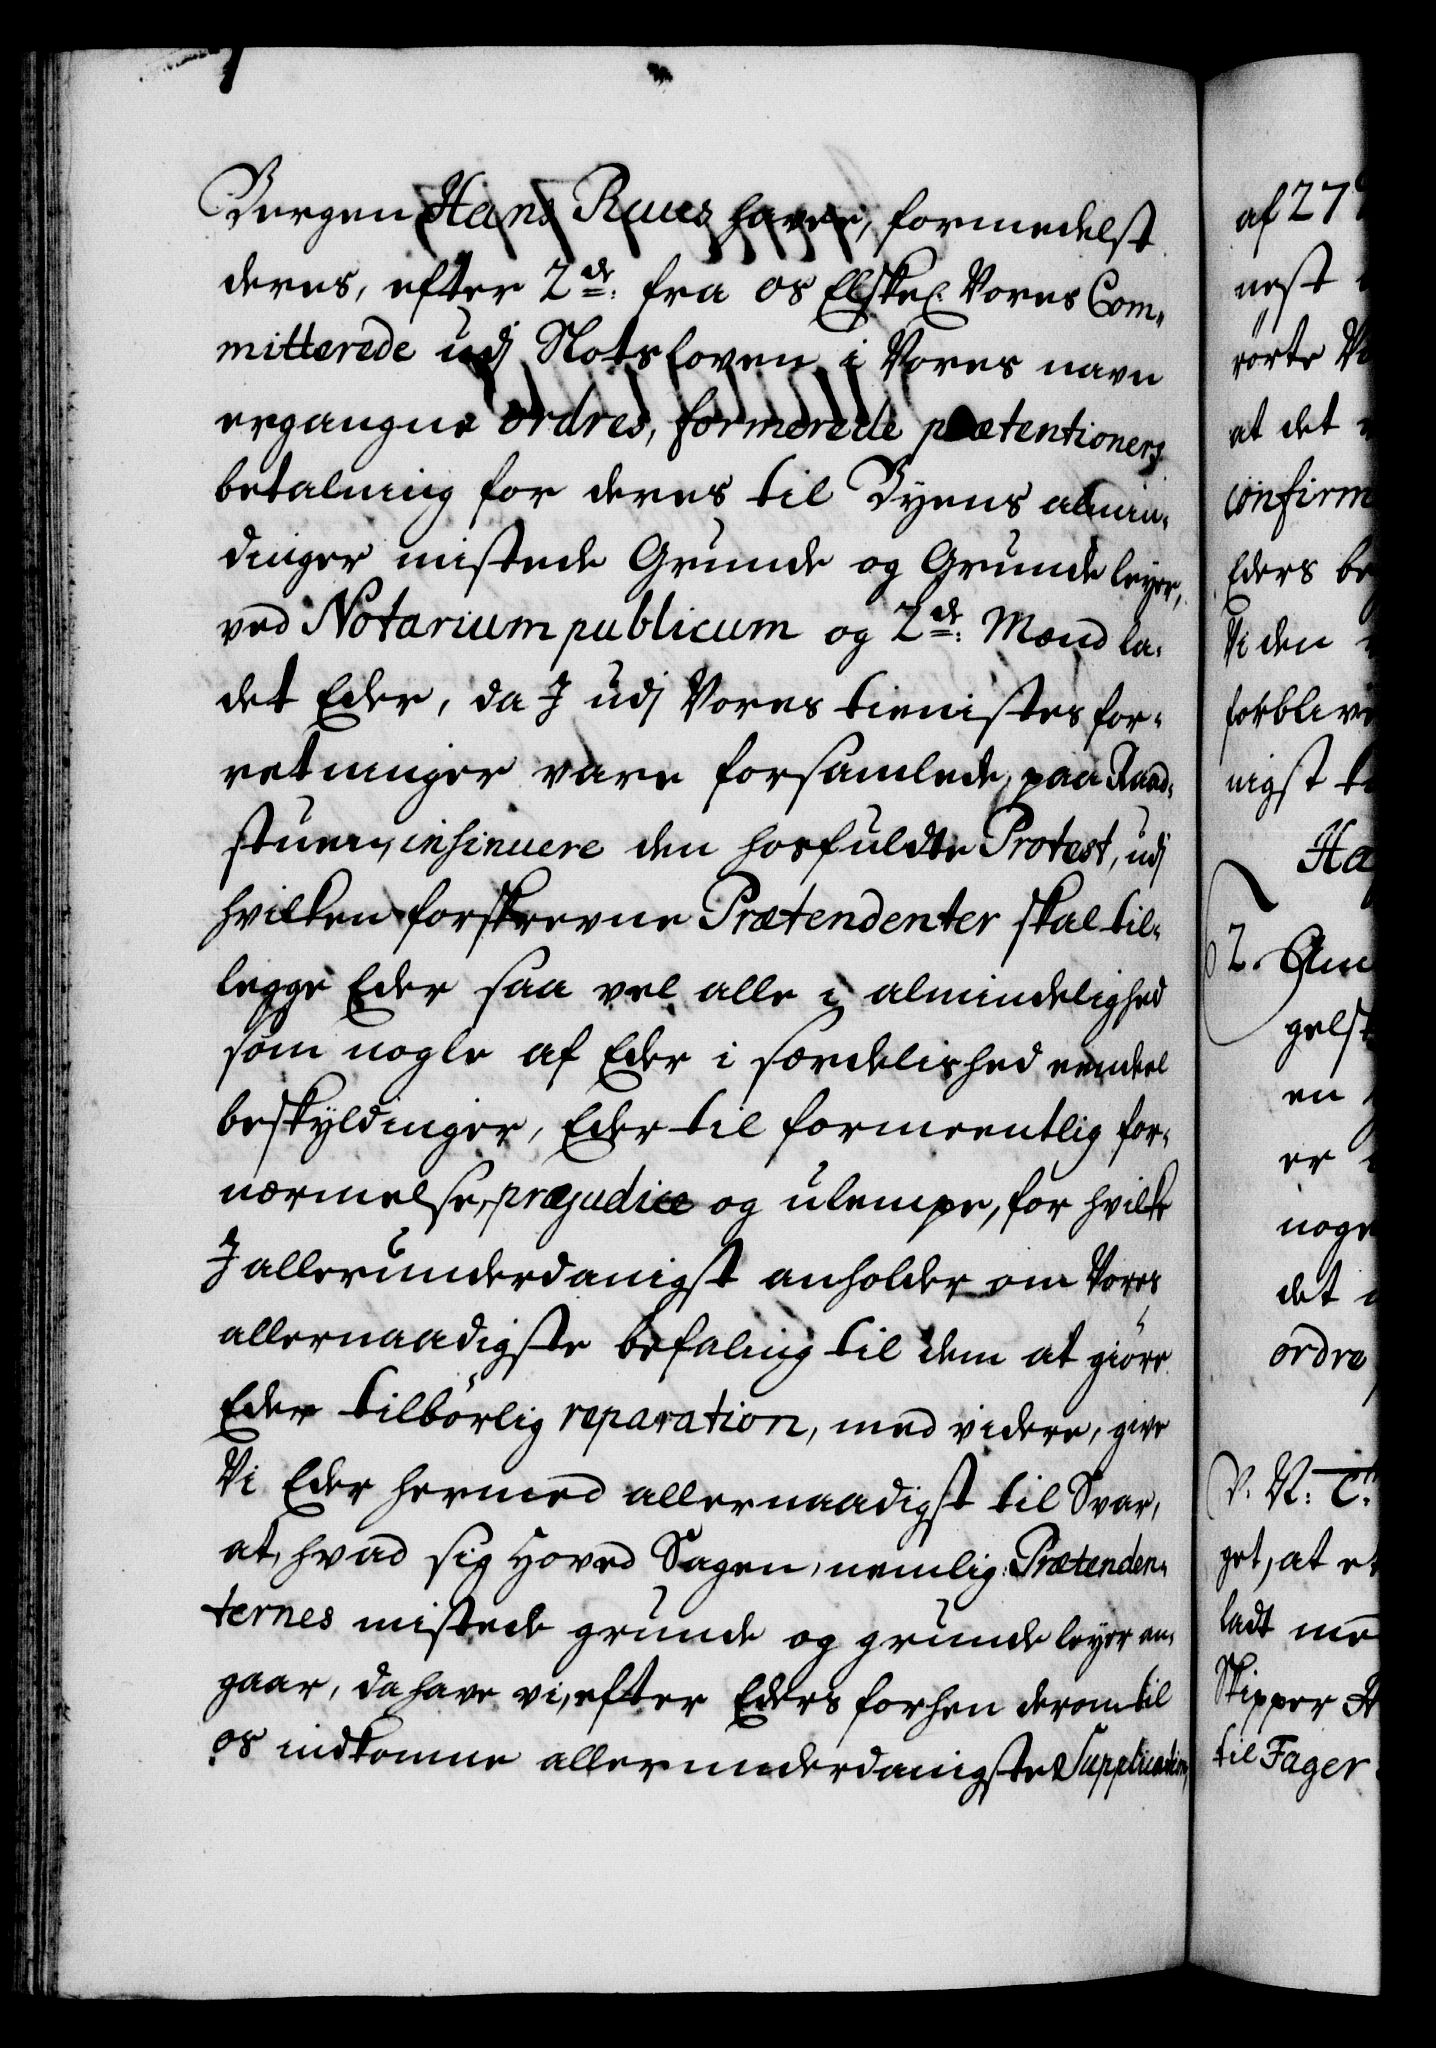 Bergen Hans Raaes haver, formedelst
deres, efter 2de: fra os Elskel. Vores Com-
mitterede udj Slotsloven i Vores navn
ergangne ordres, formerede prætentioners
betalning for deres til Byens almin-
dinger mistede Grunde og Grunde leyer,
ved Notarium publicum og 2de: Mænd la-
det Eder, da I udj Vores tienistes for-
retninger vare forsamlede paa Raad-
stuen, insinuere den hosfuldte Protest, udj
hvilken forskrevne Prætendenter skal til-
legge Eder saa vel alle i almindelighed
som nogle af Eder i særdelished eendeel
beskyldinger, Eder til formeentlig for-
nærmelse, præjudice og ulempe, for hvilke
I allerunderdanigst anholder om Vores
allernaadigste befaling til dem at giöre
Eder tilbörlig reparation, med videre, give
Vi Eder hermed allernaadigst til Svar,
at, hvad sig Hoved Sagen, nemlig Prætenden-
ternes mistede grunde og grunde leyer an-
gaar, da have vi, efter Eders forhen derom til
os indkomne allerunderdanigste Supplication,
af 27
nest
rörte
at det
confirm
Eders be
Vi den
forblive
nigst
Ha
2. Am
gelst
en
er
noge
det
ordre
V. N: C.
get, at et
ladt me
Skipper H
til Fager